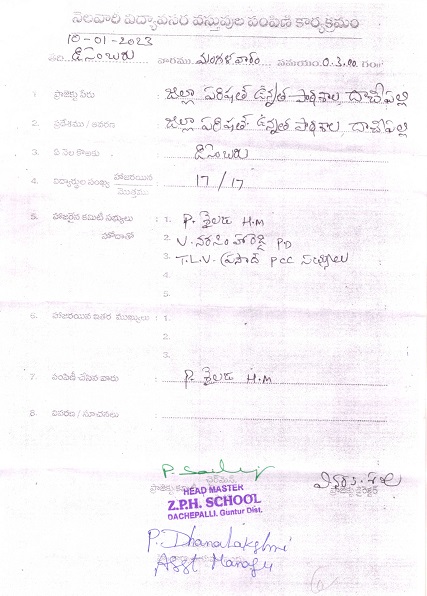 నెలవారి విద్యావసర వస్తువుల పంపిణి కార్యక్రమం
10-01-2023
తేది: డిసెంబరు వారము మంగళవారం సమయం: 0.3.00 గం॥
1. ప్రాజెక్టు పేరు : జిల్లా పరిషత్ ఉన్నత పాఠశాల, దాచేపల్లి
2. ప్రదేశము / వివరణ : జిల్లా పరిషత్ ఉన్నత పాఠశాల, దాచేపల్లి
3. ఏ నెల కొరకు : డిసెంబరు
4. విద్యార్థుల సంఖ్య హాజరయిన / మొత్తము : 17/17
5. హాజరైన కమిటి సభ్యులు : 1. P. శైలజ H.M
హోదాతో 2. V. నరసింహారెడ్డి PD
3. T.L.V. ప్రసాద్ PCC సభ్యులు
4.
5.
6. హాజరయిన ఇతర ముఖ్యులు : 1.
2.
3.
7. పంపిణీ చేసిన వారు : P. శైలజ H.M
8. వివరణ / సూచనలు :
చైర్మన్
ప్రాజెక్టు కమిటి
ప్రాజెక్టు డైరెక్టర్
HEAD MASTER
Z.P.H. SCHOOL
DACHEPALLI, Guntur Dist.
P. Dhanalakshmi
Asst Manager